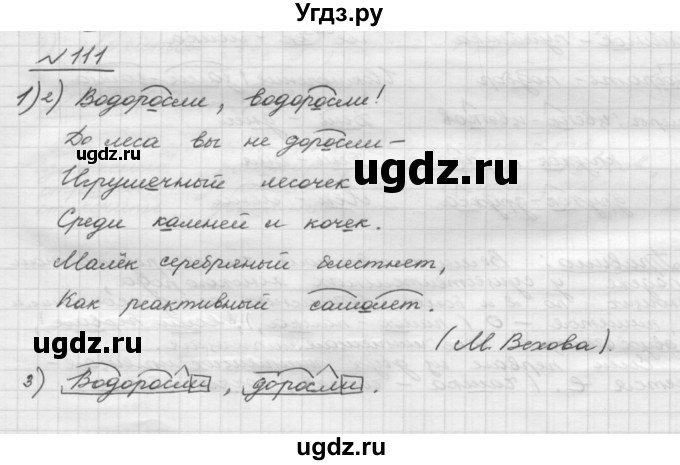 Угдз.ру
№111
1)2) Водоросли, водоросли!
До леса вы не доросли –
ugdz.ru
Игрушечный лесочек
ugdz.ru
Среди камней и кочек.
Малёк серебряный блестнет,
Как реактивный самолет.
ugdz.ru
(М. Вехова).
3) Водоросли, доросли.
ugdz.ru